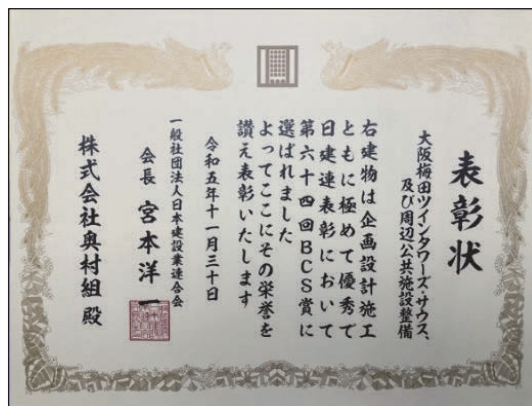 表彰状
大阪梅田ツインタワーズ・サウス、
及び周辺公共施設整備
右建物は企画設計施工
ともに極めて優秀で
日建連表彰において
第六十四回BCS賞に
選ばれました
よってここにその栄誉を
讃え表彰いたします
令和五年十一月三十日
一般社団法人日本建設業連合会
会長 宮本洋一
株式会社奥村組 殿